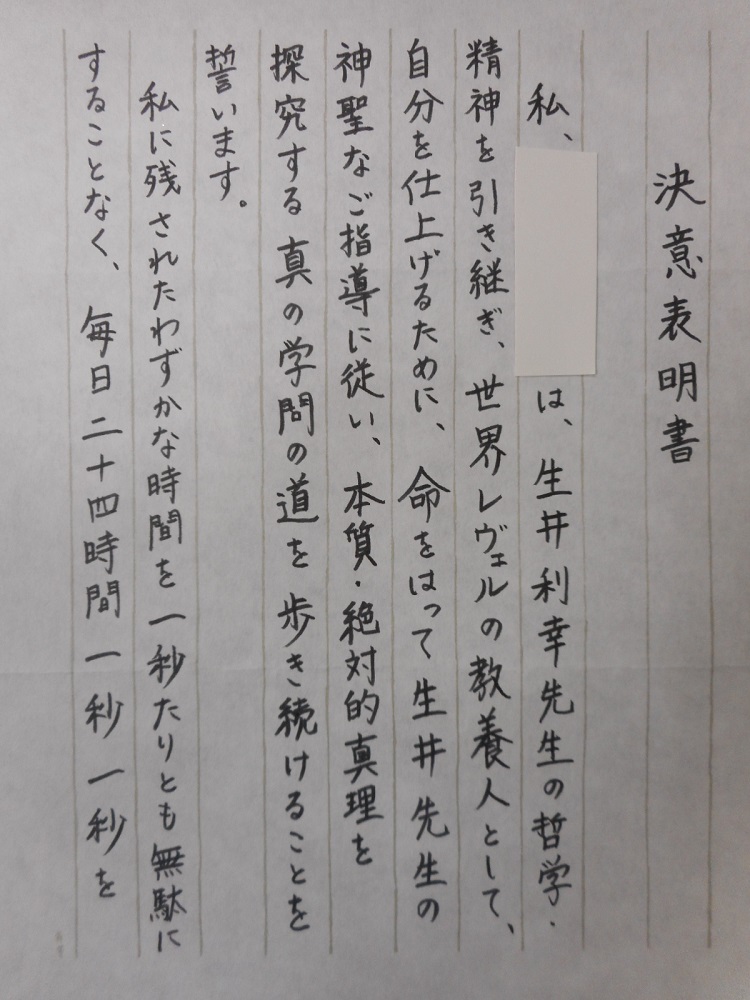 決意表明書
私、 は、生井利幸先生の哲学・
精神を引き継ぎ、世界レヴェルの教養人として、
自分を仕上げるために、命をはって生井先生の
神聖なご指導に従い、本質・絶対的真理を
探究する真の学問の道を歩き続けることを
誓います。
私に残されたわずかな時間を一秒たりとも無駄に
することなく、毎日二十四時間一秒一秒を